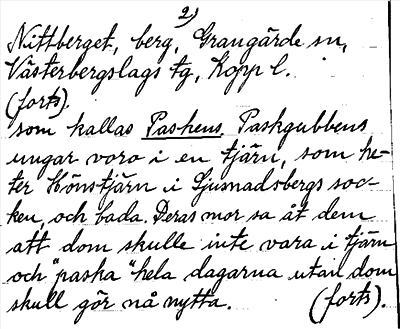 2)
Nittberget, berg, Grangärde sn,
Västerbergslags tg, Kopp l.
(forts).
som kallas Paskens. Paskgubbens
ungar voro i en tjärn, som he-
ter Hönstjärn i Ljusnadsbergs soc-
ken, och bada. Deras mor sa åt dem
att dom skulle inte vara i tjärn
och "paska" hela dagarna utan dom
skull gör nå nytta. (forts).